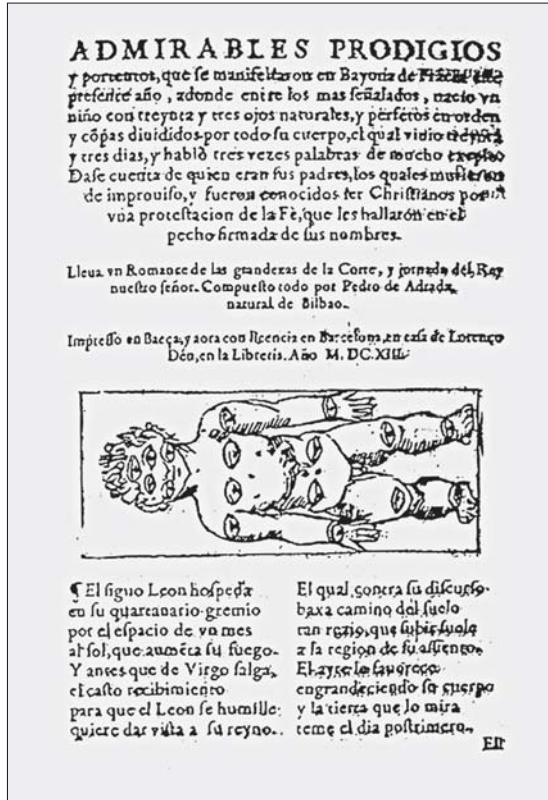 ADMIRABLES PRODIGIOS
y portentos, que se manifestaron en Bayona de Francia este
presente año, adonde entre los mas señalados, nacio vn
niño con treynta y tres ojos naturales, y perfetos en orden
y cõpas diuididos por todo su cuerpo, el qual viuio treynta
y tres dias, y hablò tres vezes palabras de mucho exemplo
Dase cuenta de quien eran sus padres, los quales murieron
de improuiso, y fueron conocidos ser Christianos por
vna protestacion de la Fè, que les hallarón en el
pecho firmada de sus nombres.
Lleua vn Romance de las grandezas de la Corte, y jornada del Rey
nuestro señor. Compuesto todo por Pedro de Adrada,
natural de Bilbao.
Impresso en Baeça, y aora con licencia en Barcelona, en casa de Lorenço
Déu, en la Libreria. Año M. DC. XIII.
¶ El signo Leon hospeda
en su quartanario gremio
por el espacio de vn mes
al sol, que aumẽta su fuego.
Y antes que de Virgo salga,
el casto recibimiento
para que el Leon se humille:
quiere dar vista a su reyno.
El qual, contra su discurso
baxa camino del suelo
tan rezio, que subir suele
a la region de su assiento.
El ayre lo fauorece
engrandeciendo su cuerpo
y la tierra que lo mira
teme el dia postrimero.